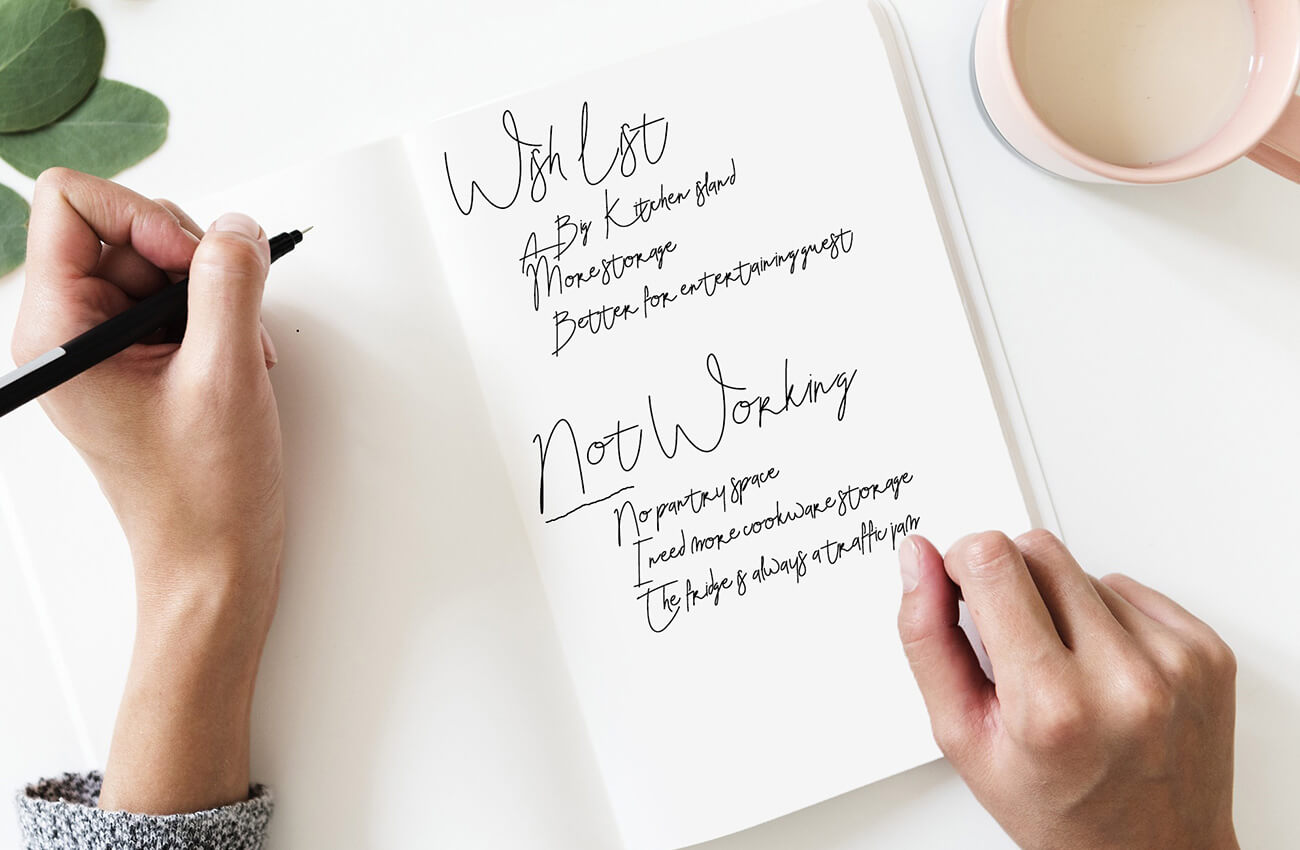 Wish List
A Big Kitchen island
More storage
Better for entertaining guest
Not Working
No pantry space
I need more cookware storage
The fridge is always a traffic jam